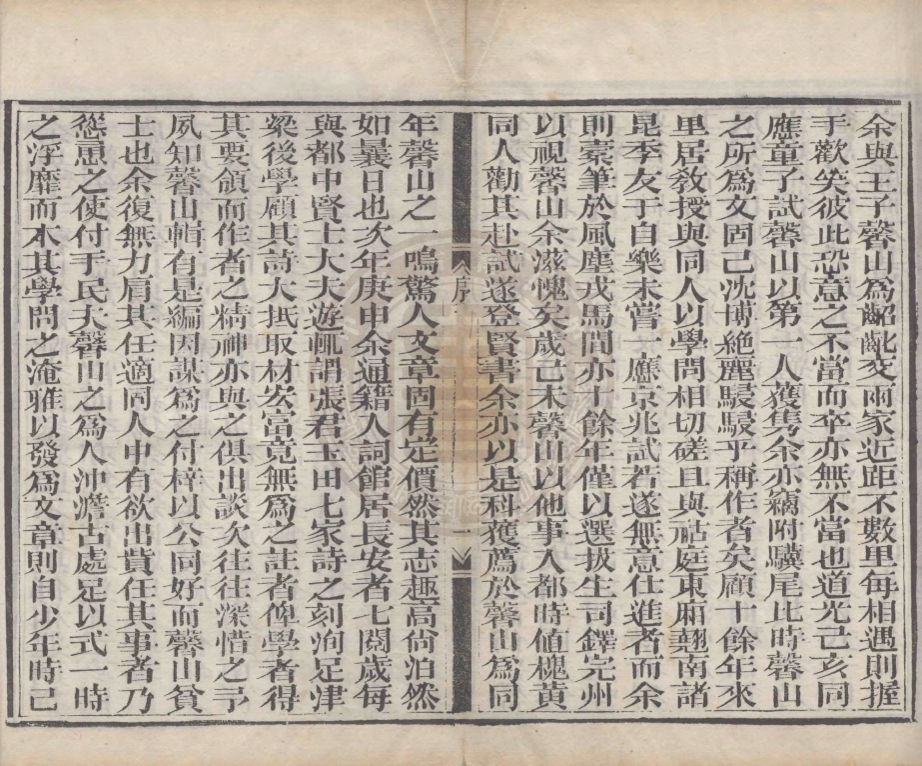 余與王子馨山爲齠齔交兩家近距不數里每相遇則握
手歡笑彼此恐意之不當而卒亦無不當也道光己亥同
應童子試馨山以第一人獲雋余亦竊附驥尾比時馨山
之所爲文固已沈博絶麗駸駸乎稱作者矣顧十餘年來
里居敎授與同人以學問相切磋且與祜庭東廂翹南諸
昆季友于自樂未嘗一應京兆試若遂無意仕進者而余
則橐筆於風塵戎馬間亦十餘年僅以選拔生司鐸完州
以視馨山余滋愧矣歲己未馨山以他事入都時値槐黃
同人勸其赴試遂登賢書余亦以是科獲薦於馨山爲同
序
年馨山之一鳴驚人文章固有定價然其志趣高尙泊然
如曩日也次年庚申余通籍入詞館居長安者七閱歲每
與都中賢士大夫遊輒謂張君玉田七家詩之刻洵足津
梁後學顧其詩大抵取材宏富竟無爲之註者俾學者得
其要領而作者之精神亦與之俱出談次往往深惜之予
夙知馨山輯有是編因謀爲之付梓以公同好而馨山貧
士也余復無力肩其任適同人中有欲出貲任其事者乃
慫恿之使付手民夫馨山之爲人沖澹古處足以式一時
之浮靡而本其學問之淹雅以發爲文章則自少年時已